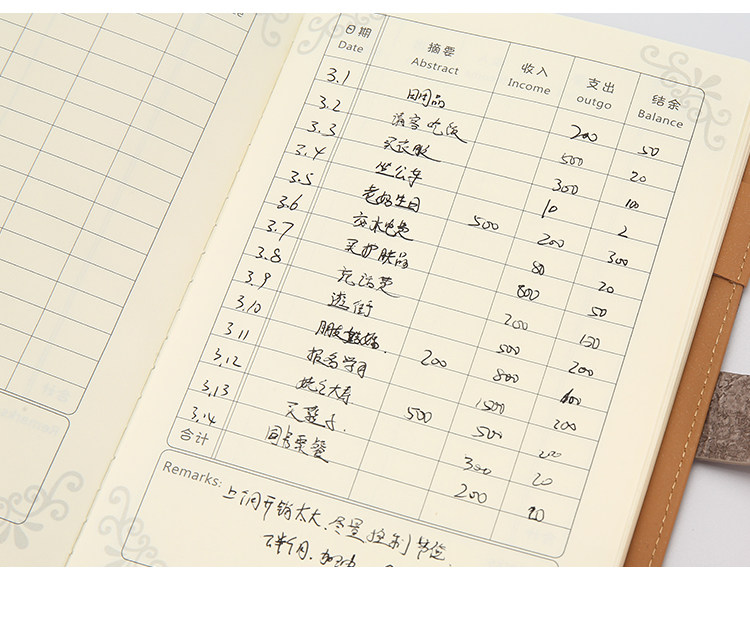 日期 摘要 收入 支出 结余
Date Abstract Income outgo Balance
3.1 日用品 200 50
3.2 请客吃饭 500 20
3.3 买衣服 300 100
3.4 坐公车 10 2
3.5 老妈生日 500 200 300
3.6 交水电费 80 20
3.7 买护肤品 800 50
3.8 充话费 200 150
3.9 逛街 500 200
3.10 朋友 200 800 100
3.11 报名学习 1500 200
3.12 大寿 500 500 200
3.13 买鞋子. 300 20
3.14 同事聚餐 200 20
合计
Remarks:
上个月开销太大,尽量控制